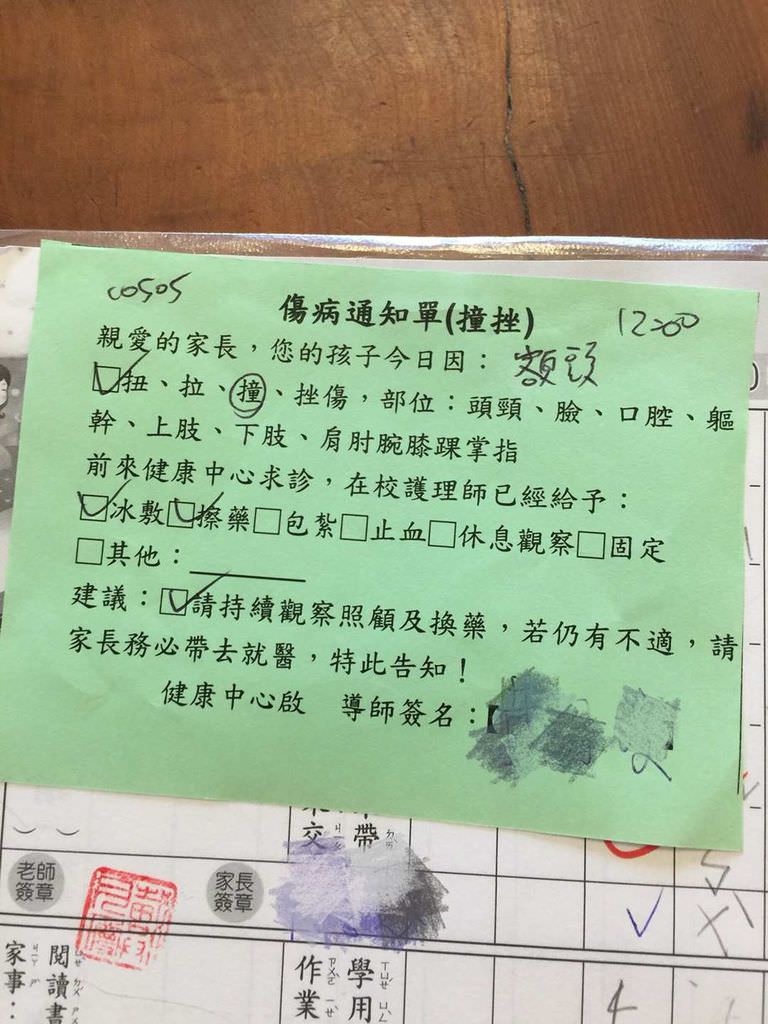 傷病通知單(撞挫)
12:00
親愛的家長，您的孩子今日因： 額頭
☑扭、拉、撞、挫傷，部位：頭頸、臉、口腔、軀
幹、上肢、下肢、肩肘腕膝踝掌指
前來健康中心求診，在校護理師已經給予：
☑冰敷☑擦藥☐包紮☐止血☐休息觀察☐固定
☐其他：
建議：☑請持續觀察照顧及換藥，若仍有不適，請
家長務必帶去就醫，特此告知！
健康中心啟 導師簽名：
交 帶
老師
簽章
家長
簽章
閱讀書
家事：
學用
作業